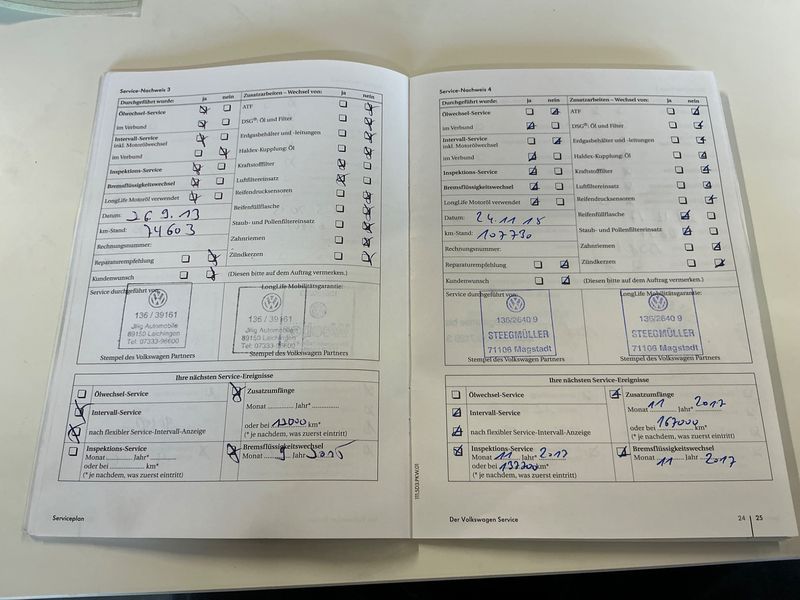 Service-Nachweis 3
Durchgeführt wurde: ja nein
Ölwechsel-Service
im Verbund
Intervall-Service
inkl. Motorölwechsel
im Verbund
Inspektions-Service
Bremsflüssigkeitswechsel
LongLife Motoröl verwendet
Datum: 26 9. 13
km-Stand: 74603
Rechnungsnummer:
Reparaturempfehlung
Kundenwunsch
Zusatzarbeiten – Wechsel von: ja nein
ATF
DSG®: Öl und Filter
Erdgasbehälter und -leitungen
Haldex-Kupplung: Öl
Kraftstofffilter
Luftfiltereinsatz
Reifendrucksensoren
Reifenfüllflasche
Staub- und Pollenfiltereinsatz
Zahnriemen
Zündkerzen
(Diesen bitte auf dem Auftrag vermerken.)
Service durchgeführt von:
LongLife Mobilitätsgarantie:
136 / 39161
Jllig Automobile
89150 Laichingen
Tel. 07333-96600
136 / 39161
Jllig Automobile
89150 Laichingen
Tel. 07333-96600
Stempel des Volkswagen Partners
Stempel des Volkswagen Partners
Ihre nächsten Service-Ereignisse
Ölwechsel-Service
Intervall-Service
nach flexibler Service-Intervall-Anzeige
Inspektions-Service
Monat Jahr*
oder bei km*
(* je nachdem, was zuerst eintritt)
Zusatzumfänge
Monat Jahr*
oder bei km*
(* je nachdem, was zuerst eintritt)
Bremsflüssigkeitswechsel
Monat 9 Jahr 2015
Serviceplan
Service-Nachweis 4
Durchgeführt wurde: ja nein
Ölwechsel-Service
im Verbund
Intervall-Service
inkl. Motorölwechsel
im Verbund
Inspektions-Service
Bremsflüssigkeitswechsel
LongLife Motoröl verwendet
Datum: 24.11.15
km-Stand: 107730
Rechnungsnummer:
Reparaturempfehlung
Kundenwunsch
Zusatzarbeiten – Wechsel von: ja nein
ATF
DSG®: Öl und Filter
Erdgasbehälter und -leitungen
Haldex-Kupplung: Öl
Kraftstofffilter
Luftfiltereinsatz
Reifendrucksensoren
Reifenfüllflasche
Staub- und Pollenfiltereinsatz
Zahnriemen
Zündkerzen
(Diesen bitte auf dem Auftrag vermerken.)
Service durchgeführt von:
LongLife Mobilitätsgarantie:
136/2640 9
STEEGMÜLLER
71106 Magstadt
136/2640 9
STEEGMÜLLER
71106 Magstadt
Stempel des Volkswagen Partners
Stempel des Volkswagen Partners
Ihre nächsten Service-Ereignisse
Ölwechsel-Service
Intervall-Service
nach flexibler Service-Intervall-Anzeige
Inspektions-Service
Monat 11 Jahr* 2017
oder bei 137700 km*
(* je nachdem, was zuerst eintritt)
Zusatzumfänge
Monat 11 Jahr* 2017
oder bei 167000 km*
(* je nachdem, was zuerst eintritt)
Bremsflüssigkeitswechsel
Monat 11 Jahr 2017
Der Volkswagen Service
24 | 25